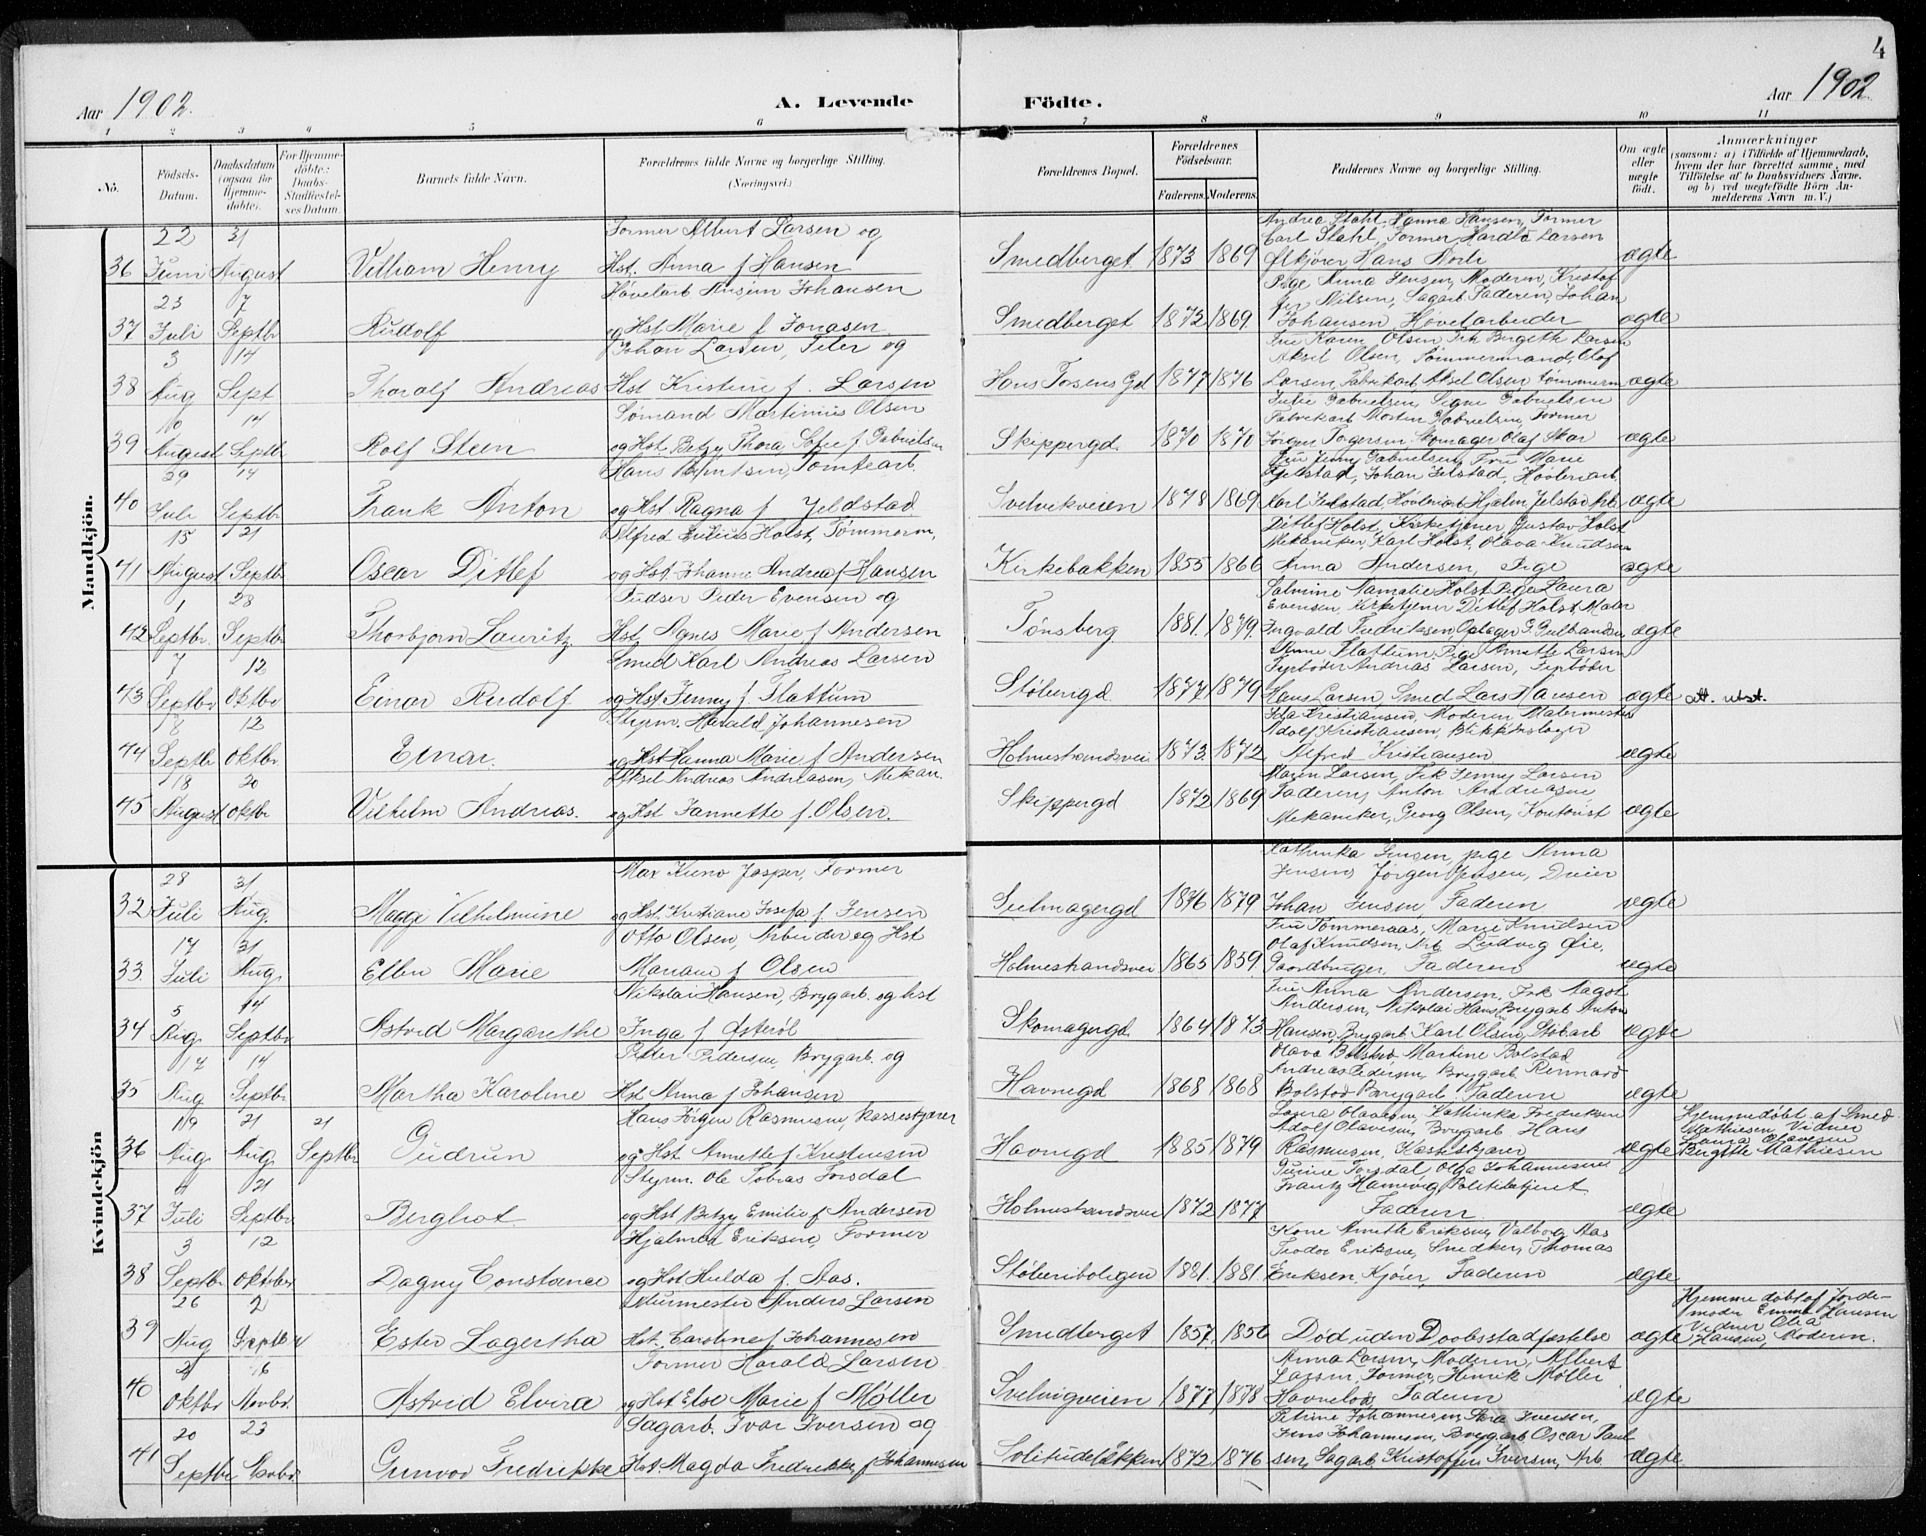 4
Aar 1902.
A. Levende Födte.
Aar 1902
1 2 3 4 5 6 7 8 9 10 11
No.
Födsels-Datum.
Daabsdatum (ogsaa for Hjemmedöbte).
For Hjemmedöbte: Daabs-Stadfæstelses Datum.
Barnets fulde Navn.
Forældrenes fulde Navne og borgerlige Stilling.
(Næringsvei.)
Forældrenes Bopæl.
Forældrenes Födselsaar.
Faderens. Moderens.
Faddernes Navne og borgerlige Stilling.
Om ægte eller uægte födt.
Anmærkninger
(saasom: a) i Tilfælde af Hjemmedaab, hvem der har forrettet samme, med Tilföielse af to Daabsvidners Navne. og b) ved uægtefödte Börn Anmelderens Navn m. V.)
Mandkjön.
36 22 Juni 31 August Villiam Henry Former Albert Larsen og Hst. Anna f Hansen Smedberget 1873 1869 Andrea Stahl, Hanna Hansen, Former Carl Stahl, Former Larsen Ølkjører Hans ægte
37 23 Juli 7 Septbr Rudolf Høvelarb Johansen og Hst Marie f Jonasen Smedberget 1872 1869 Pige Anna Jensen, Moderen, Kristoffer Nilsen, Sagarb Faderen, Johan Johansen Høvelarbeider ægte
38 3 Aug 14 Sept Thoralf Andreas Johan Larsen, Filer og Hst Kristine f. Larsen Hans Tosens Gd 1877 1876 Fru Karen Olsen Frk Bergith Larsen Aksel Olsen, Tømmermand, Olaf Larsen, Fabrikarb Aksel Olsen tømmerm ægte
39 10 August 14 Septbr Rolf Steen Sømand Martinius Olsen og Hst Betzy Thora Sofie f Gabrielsen Skippergd 1870 1870 Julie Gabrielsen, Signe Gabrielsen Fabrikarb Morten Gabrielsen, Former Jørgen Togersen Skomager Olaf Skar ægte
40 29 Juli 14 Septbr Frank Anton Hans Tomtearb. og Hst Ragna f Jeldstad Svelvikveien 1878 1869 Fru Jenny Gabrielsen, Fru Marie Jeldstad, Johan Jelstad, Høvleriarb Karl Jelstad, Høvleriarb Hjalm Jelstad ægte
41 15 August 21 Septbr Oscar Ditlef Alfred Julius Holst, Tømmerm, og Hst. Johanne Andrea f Hansen Kirkebakken 1855 1866 Ditlef Holst, Kirketjener Gustav Holst Mekaniker, Karl Holst, Olava Knudsen Anna Andersen, Pige ægte
42 1 Septbr. 28 Septbr Thorbjørn Lauritz Peder Evensen og Hst Agnes Marie f Andersen Tønsberg 1881. 1879. Salmine Holst Pige Laura Evensen, Kirketjener Ditlef Holst Maler Ingvald Fredriksen, ægte
43 7 Septbr 12 Oktbr Einar Rudolf Smed Karl Andreas Larsen og Hst. Jenny f Flattum Støbergd. 1877 1879 Flattum, Pige Annette Larsen Andreas Larsen, Hans Larsen, Smed Lars Hansen ægte att. utst.
44 18 Septbr 12 Oktbr Einar. Styrm. Harald Johannesen og Hst Hanna Marie f Andersen Holmestrandsvei 1873. 1872. Ida Kristiansen, Moderen Malermester Adolf Kristiansen, Blikkenslager Alfred Kristiansen ægte
45 18 August 20 Oktbr Vilhelm Andreas. Aksel Andreas Andreasen, Mekan. og Hst Jannette f. Olsen. Skippergd 1872 1869 Maren Larsen, Frk Jenny Larsen Faderen, Anton Andreasen Mekaniker, Georg Olsen, Kontorist ægte
Kvindekjön
32 28 Juli 31 Aug. Maggi Vilhelmine Max Kuno Jasper, Former og Hst. Kristiane Josefa f Jensen Selmagergd 1876 1879 Kathinka Jensen, pige Anna Jensen Jørgen Jensen, Dreier Johan Jensen, Faderen ægte
33 17 Juli 31 Aug. Ellen Marie Otto Olsen, Arbeider og Hst Mariane f Olsen Holmestrandsvei 1865 1859 Fru Tømmeraas, Marie Knudsen Olaf Knudsen, Arb Ludvig Øie, Gaardbruger, Faderen ægte
34 5 Aug. 14 Septbr Astrid Margarethe Nikolai Hansen, Brygarb. og hst Inga f Østerøb Skomagergd 1864 1873 Fru Anna Andersen, Frk Aagot Andersen, Nikolai Hansen Brygarb Anton Hansen, Brygarb Karl Olsen, Støbarb ægte
35 17 Aug 14 Septbr Martha Karoline Petter Pedersen, Brygarb. og Hst Anna f Johansen Havnegd 1868 1868 Olava Bolstad Martine Bolstad Andreas Pedersen, Brygarb Rennard Bolstad Brygarb. Faderen ægte
36 19 Aug 21 Aug. 21 Septbr Gudrun Hans Jørgen Rasmussen, kassestyrer og Hst Annette f Kristensen Havnegd 1885 1879 Laura Olavesen, Kathinka Fredriksen Adolf Olavesen, Brygarb Hans Rasmussen, Kassestyrer ægte Hjemmedøbt af Smed Mathiesen, Vidner Laura Olavesen Birgitte Mathiesen
37 11 Juli 21 Septbr Bergliot Styrm. Ole Tobias Torsdal og Hst Betzy Emilie f Andersen Holmestrandsvei 1872 1877 Gurine Torsdal, Olga Johannesen Frantz Politibetjent Faderen ægte
38 3 Septbr 12 Oktober Dagny Constance Hjalmar Eriksen, Former og Hst Hulda f. Aas. Støberiboligen 1881. 1881. Kone Annette Eriksen, Valborg Aas Teodor Eriksen, Smedker, Thomas Eriksen, Kjører, Faderen ægte
39 26 Aug 2 Septbr Ester Lagertha Murmester Anders Larsen Hst. Caroline f Johannesen Smedberget 1857. 1856 Død uden Daabsstadfæstelse ægte Hjemmedøbt af Jordemoder Emma Hansen Vidner Olea Hansen, Moderen.
40 2 Oktbr 16 Novbr. Astrid Elvira Former Harald Larsen og Hst. Else Marie f Møller Svelvigveien 1877 1878 Anna Larsen, Moderen, Albert Larsen, Former, Henrik Møller Havnelods, Faderen ægte
41 20 Septbr 23 Novbr Gunvor Fredrikke Sagarb. Ivar Iversen og Hst. Magda Fredrikke f Johannesen Solitudeløkken 1872 1876 Petrine Johannesen, Sara Iversen, Jens Johannesen, Brygarb Oscar Paulsen, Sagarb, Kristoffer Iversen, Arb ægte